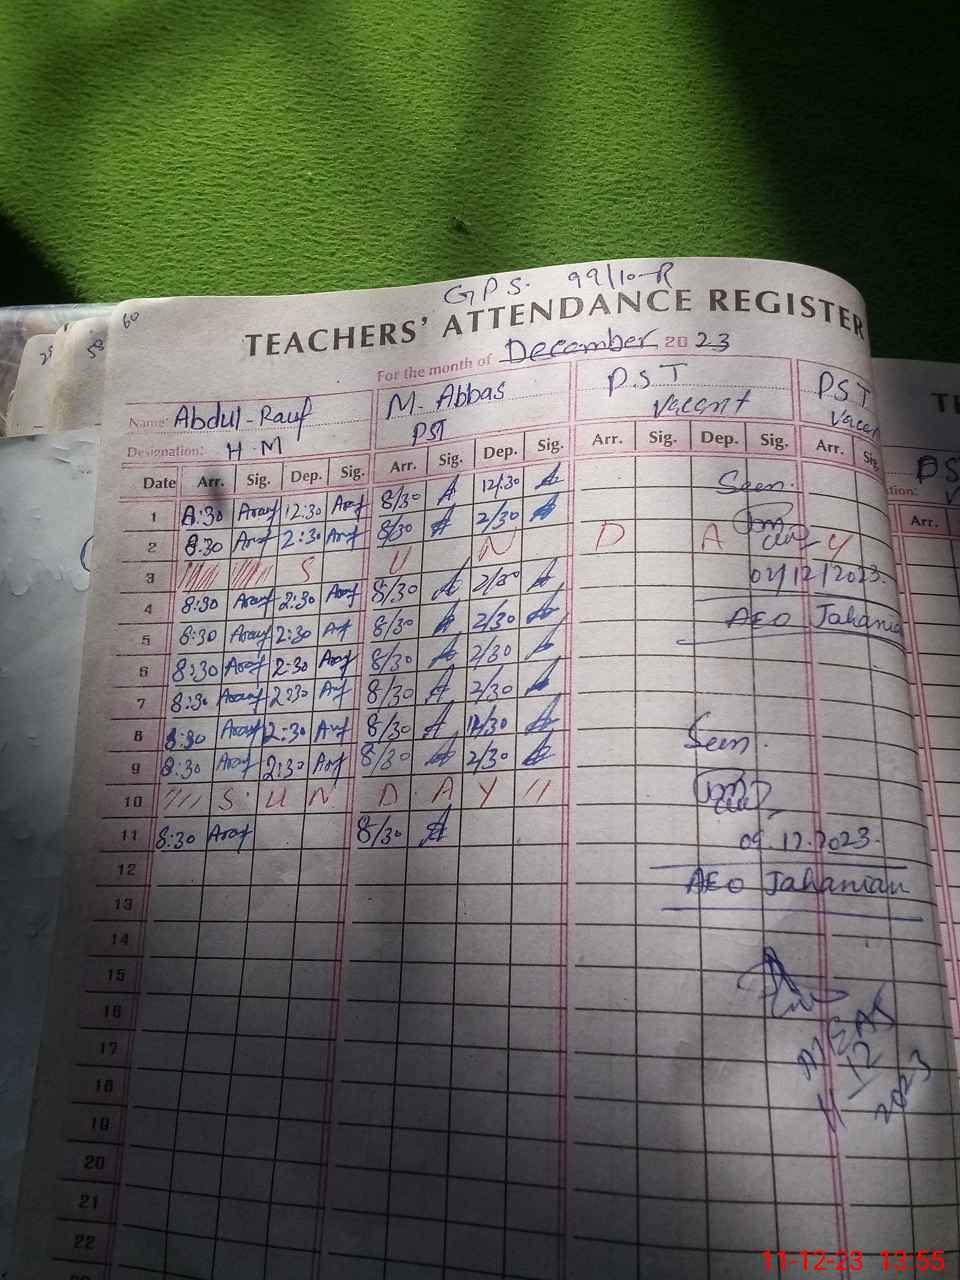 60
58
GPS. 99/10-R
TEACHERS' ATTENDANCE REGISTER
For the month of December 2023
Name: Abdul-Rauf M. Abbas PST PST
Vacant
Designation: H.M PST
Date Arr. Sig. Dep. Sig. Arr. Sig. Dep. Sig. Arr. Sig. Dep. Sig. Arr. Sig.
1 8:30 Arauf 12:30 Arauf 8/30 A 12/:30 A Seen.
2 8:30 Arauf 2:30 Arauf 8/30 A 2/30 A
3 S U N D A Y
02/12/2023.
4 8:30 Arauf 2:30 Arauf 8/30 A 2/30 A
AEO Jahania
5 8:30 Arauf 2:30 Arauf 8/30 A 2/30 A
6 8:30 Arauf 2:30 Arauf 8/30 A 2/30 A
7 8:30 Arauf 2:30 Arauf 8/30 A 2/30 A
8 8:30 Arauf 2:30 Arauf 8/30 A 12/30 A
Seen.
9 8:30 Arauf 2:30 Arauf 8/30 A 2/30 A
10 S U N D A Y
11 8:30 Arauf 8/30 A
09.12.2023.
12
AEO Jahanian
13
14
15
16
MEA
17
12
11
2023
18
19
20
21
22
PS
tion:
Arr.
11-12-23 13:55